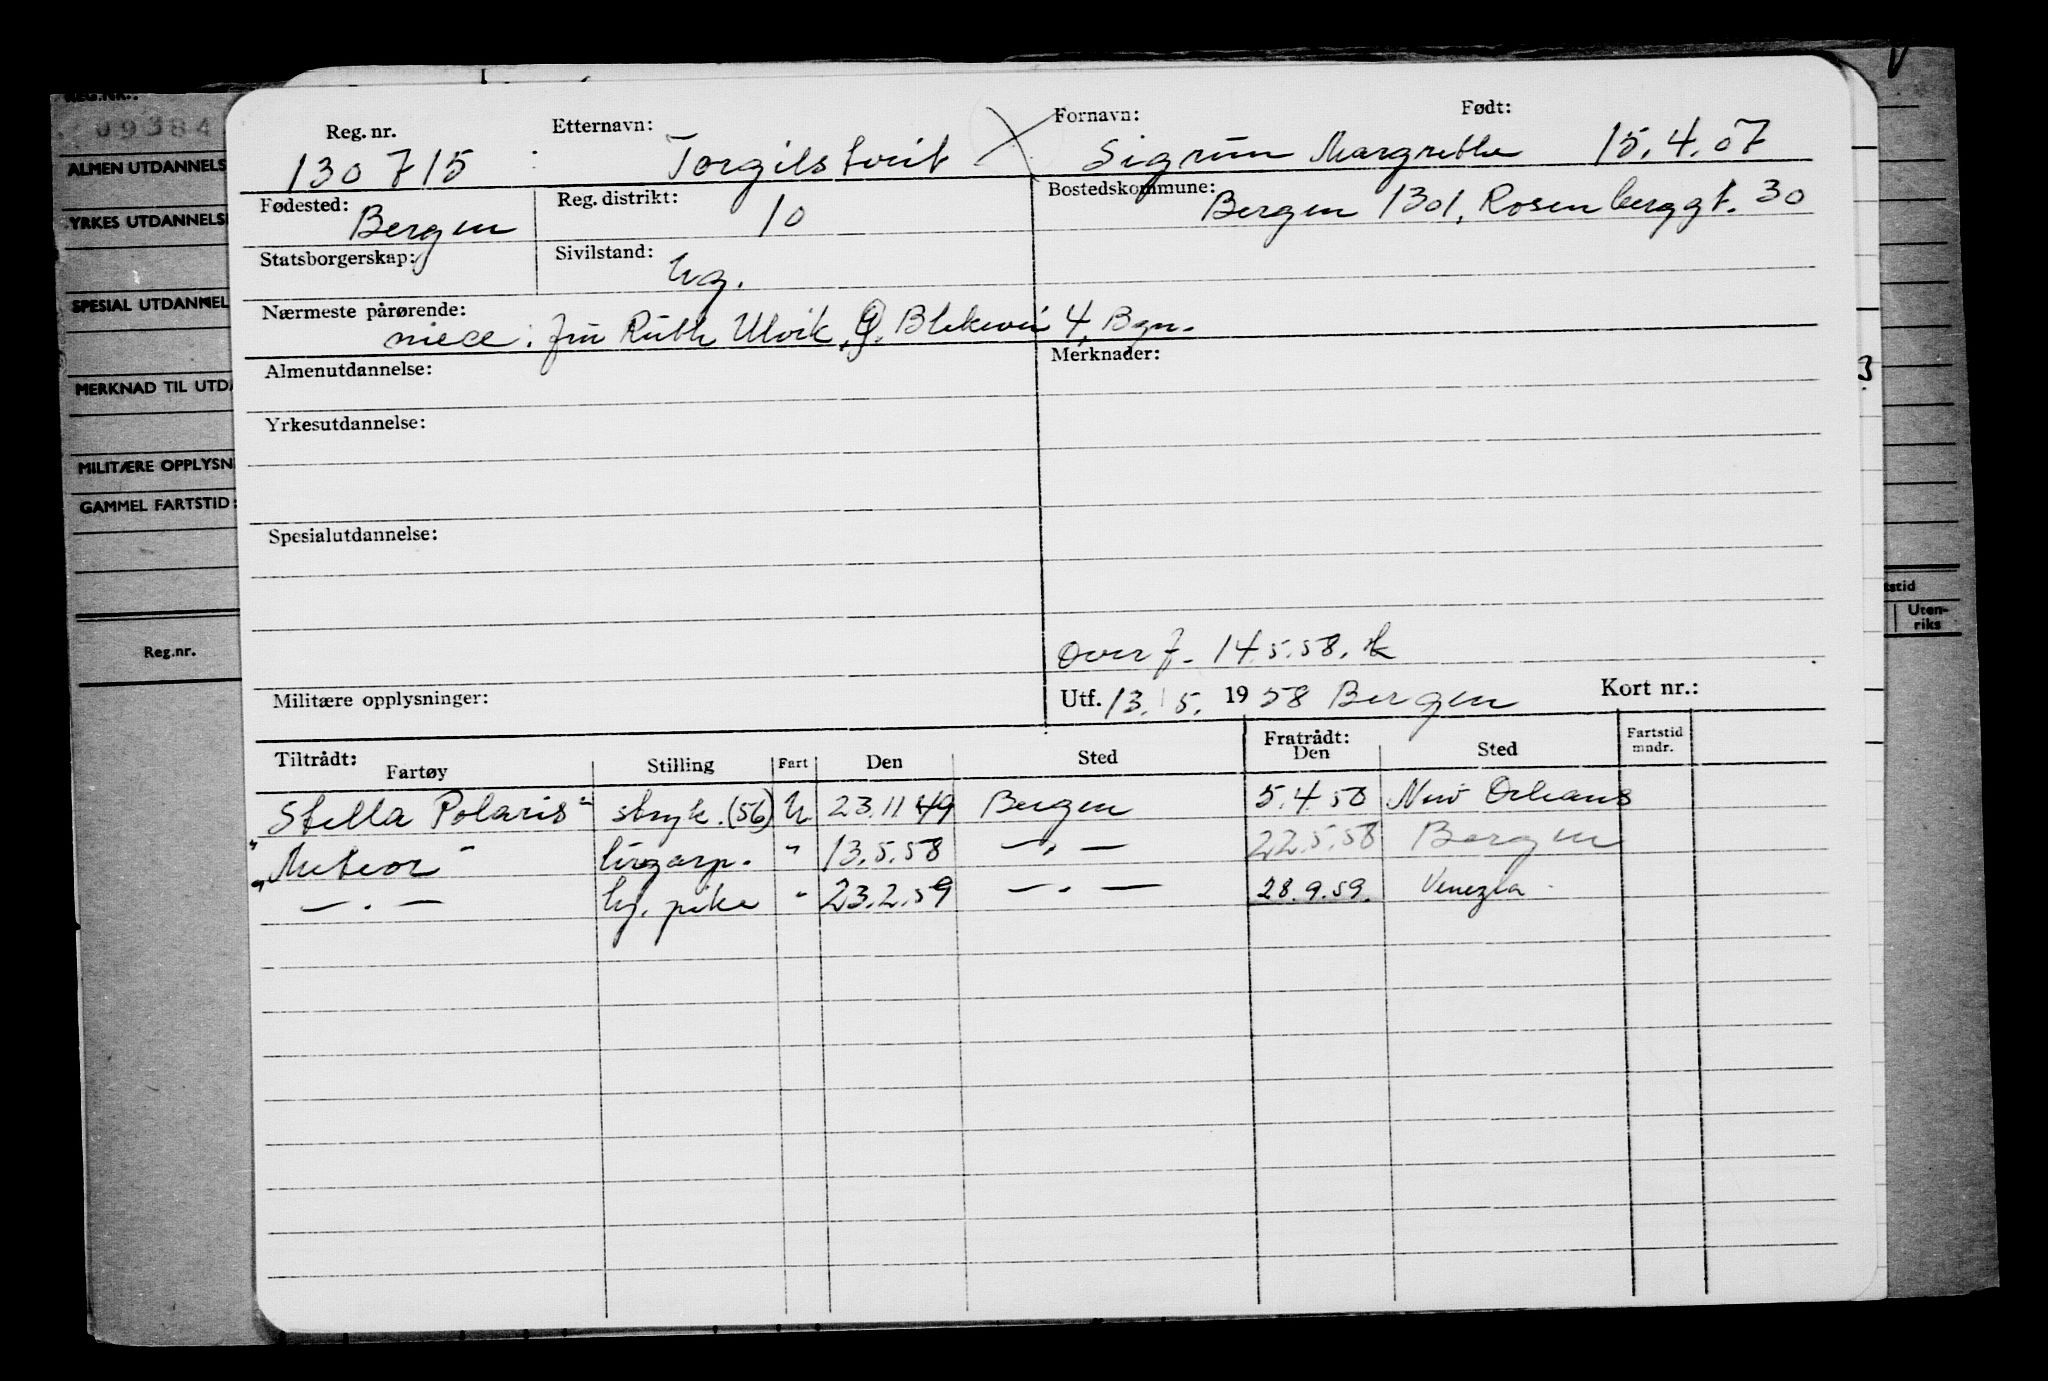 REG.NR.:
09384
ALMEN UTDANNELS
YRKES UTDANNELSE
SPESIAL UTDANNEL
MERKNAD TIL UTDA
MILITÆRE OPPLYSN
GAMMEL FARTSTID:
Reg.nr.
3
tstid
Uten-
riks
Reg. nr. Etternavn: Fornavn: Født:
130 715 Torgilstveit Sigrun Margrethe 15.4.07
Fødested: Reg. distrikt: Bostedskommune:
Bergen 10 Bergen 1301, Rosenberggt. 30
Statsborgerskap: Sivilstand:
ug.
Nærmeste pårørende:
niece: fru Ruth Ulvik, 4, Bgn.
Almenutdannelse: Merknader:
Yrkesutdannelse:
Spesialutdannelse:
Overf. 14.5.58.
Militære opplysninger: Utf. 13. 5. 1958 Bergen Kort nr.:
Tiltrådt: Fartøy Stilling Fart Den Sted Fratrådt: Den Sted Fartstid mndr.
Stella Polaris" stryk. (56) U 23.11 49 Bergen 5.4.50 New Orleans
"Meteor" " 13.5.58 — " — 22.5.58 Bergen
" — . — pike " 23.2.59 — . — 28.9.59. Venezia